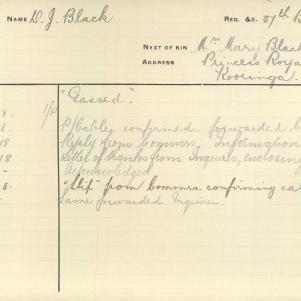 NAME D. J. Black
REG. &C. 37th B
NEXT OF KIN Mrs Mary Black
ADDRESS Princess Roya
Kooringa.
"Gassed".
8. 1/0 P/Cable, confirmed, forwarded
18 Reply from Commrs. Information
18 Letter of thanks from Inquirer, enclosing
Acknowledged
8. "Slip" from Commrs. confirming ca
Same forwarded Inquirer.